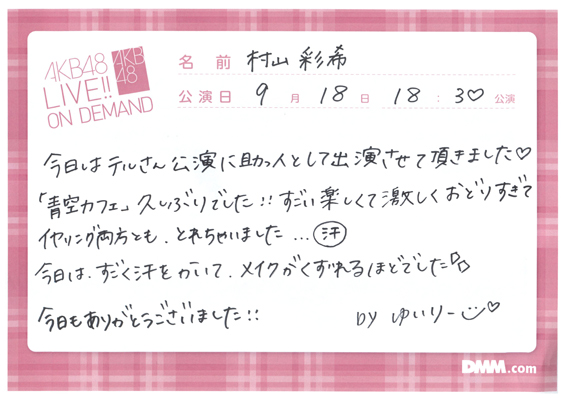 AKB48
LIVE!!
ON DEMAND
AKB
48
名前 村山彩希
公演日 9月18日 18:30公演
今日はテルさん公演に助っ人として出演させて頂きました♡
「青空カフェ」久しぶりでした!!すごい楽しくて激しくおどりすぎて
イヤリング両方とも、とれちゃいました...汗
今日は、すごく汗をかいて、メイクがくずれるほどでした
今日もありがとうございました!!
by ゆいりー♡
DMM.com